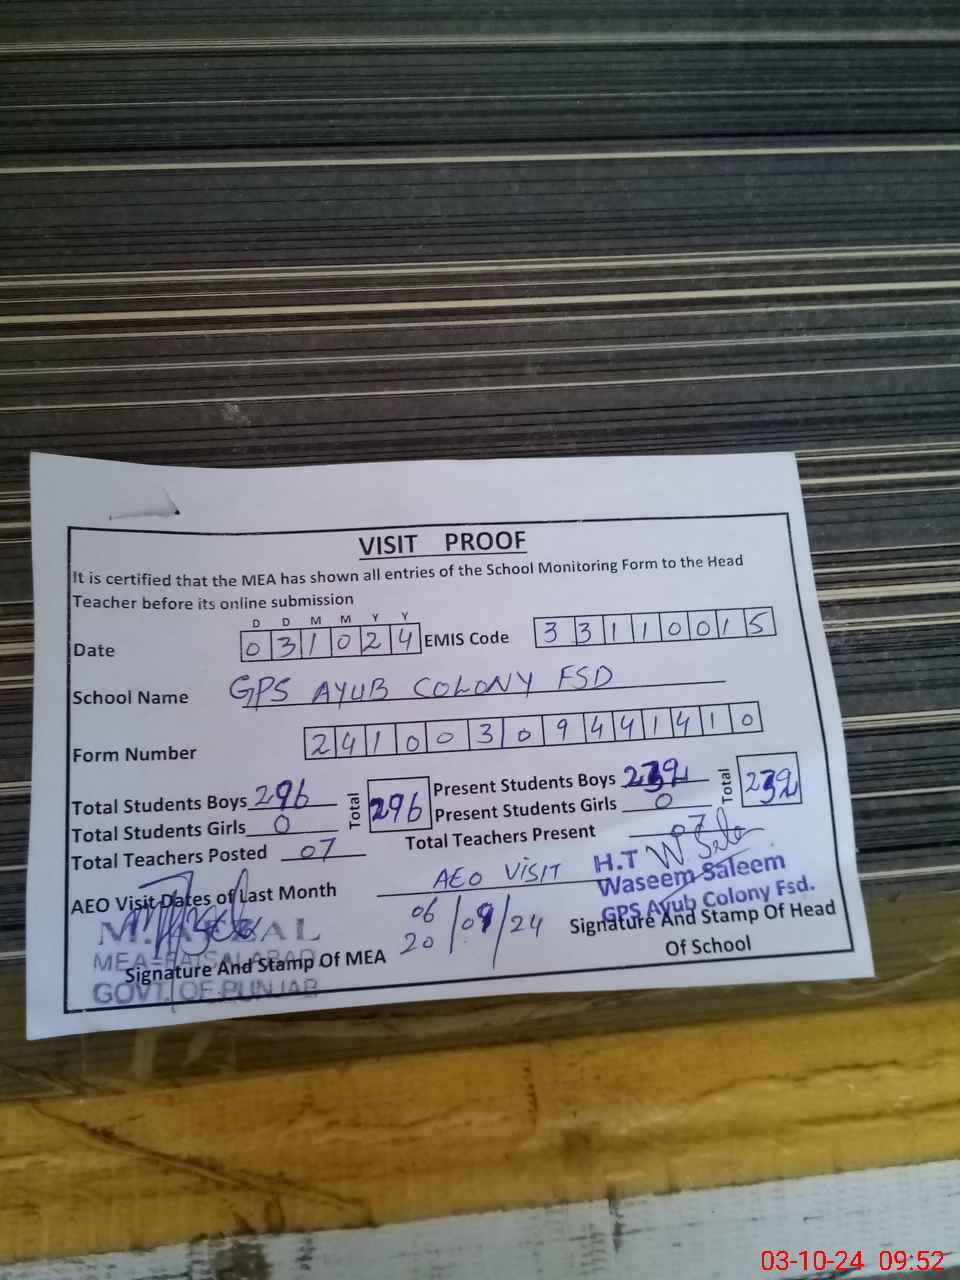 VISIT PROOF
It is certified that the MEA has shown all entries of the School Monitoring Form to the Head
Teacher before its online submission
D D M M Y Y
Date 0 3 1 0 2 4 EMIS Code 3 3 1 1 0 0 1 5
School Name GPS AYUB COLONY FSD
Form Number 2 4 1 0 0 3 0 9 4 4 1 4 1 0
Total Students Boys 296 Total 296 Present Students Boys 239 Total 239
Total Students Girls 0 Present Students Girls 0
Total Teachers Posted 07 Total Teachers Present 07
AEO Visit Dates of Last Month AEO VISIT
06 20 /09/24
H.T
Waseem Saleem
GPS Ayub Colony Fsd.
MEA-FAISALABAD
GOVT. OF PUNJAB
Signature And Stamp Of MEA
Signature And Stamp Of Head
Of School
03-10-24 09:52